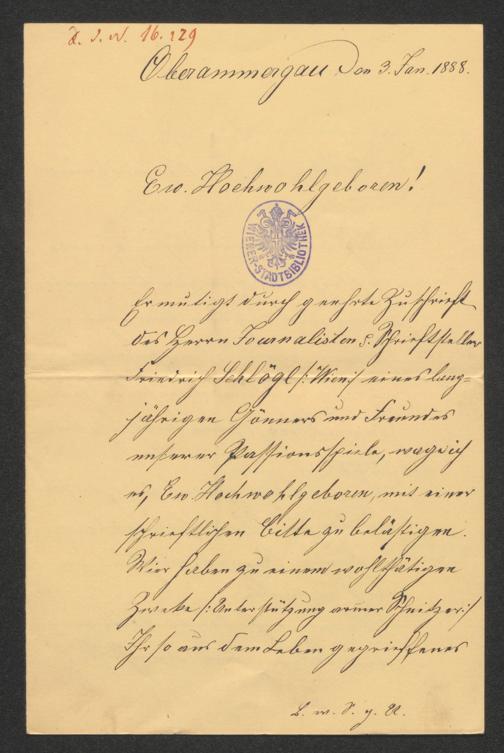 I. N. 16.129
Oberammergau den 3. Jan. 1888.
Ew. Hochwohlgeboren!
WIENER-STADTBIBLIOTHEK
Ermutigt durch geehrte Zuschrift
des Herrn Journalisten &. Schriftsteller
Friedrich Schlögl /: Wien :/ eines lang-
jährigen Gönners und Freundes
unserer Passionsspiele, wage ich
es, Ew. Hochwohlgeboren, mit einer
schrieftlichen Bitte zu belästigen.
Wier haben zu einem wohlthätigen
Zweke /: Unterstützung armer Schnitzer :/
Ihr so aus dem Leben gegrieffenes
b. w. S. g. U.